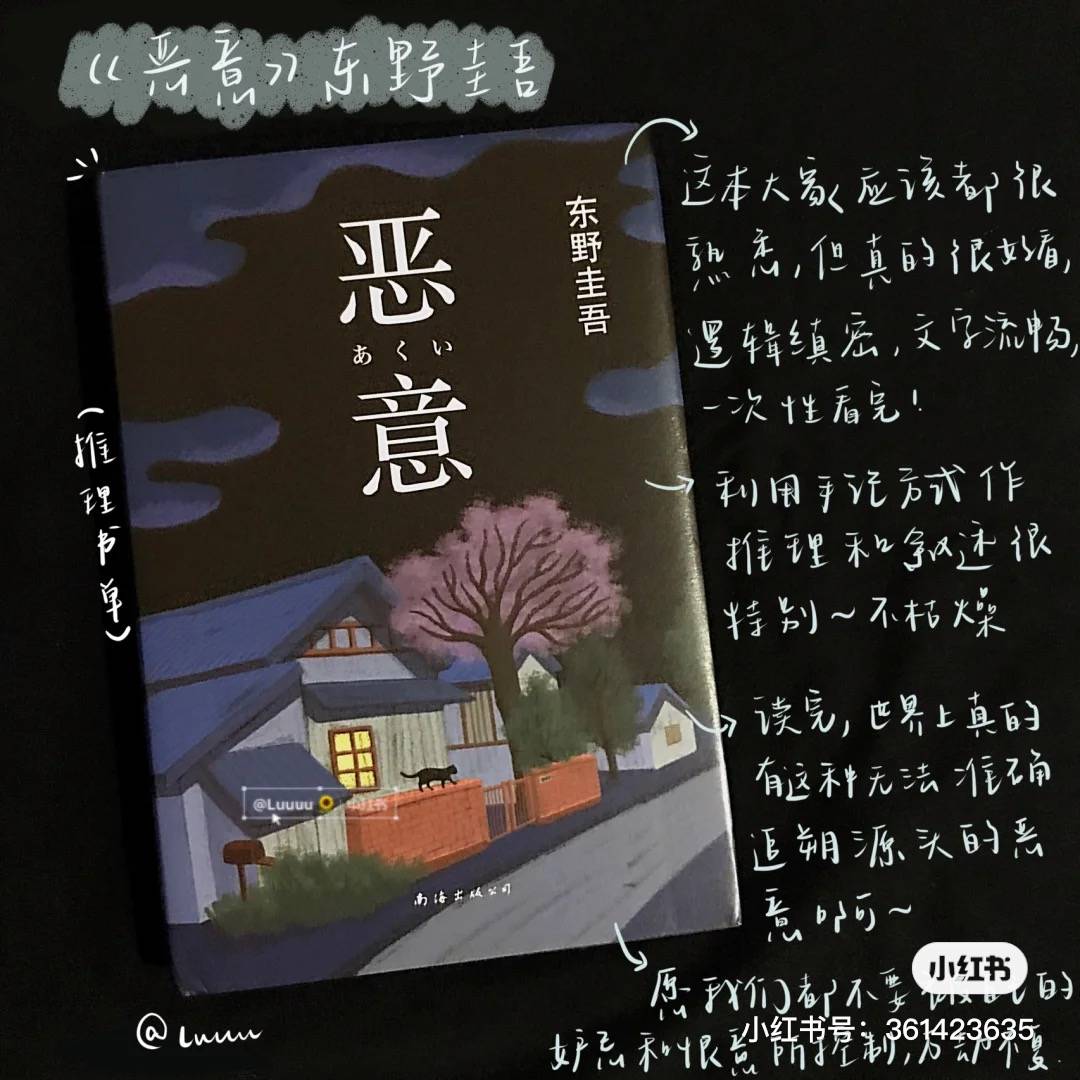 《恶意》东野圭吾
恶
あくい
意
东野圭吾
南海出版公司
@Luuuu 小红书
(推理书单)
这本大家应该都很
熟悉,但真的很好看,
逻辑缜密,文字流畅,
一次性看完!
利用手记方式作
推理和叙述很
特别~不枯燥
读完,世界上真的
有这种无法准确
追朔源头的恶
意啊~
愿我们都不要 的
妒忌和恨意所控制,万劫不复
小红书
小红书号:361423635
@Luuuu